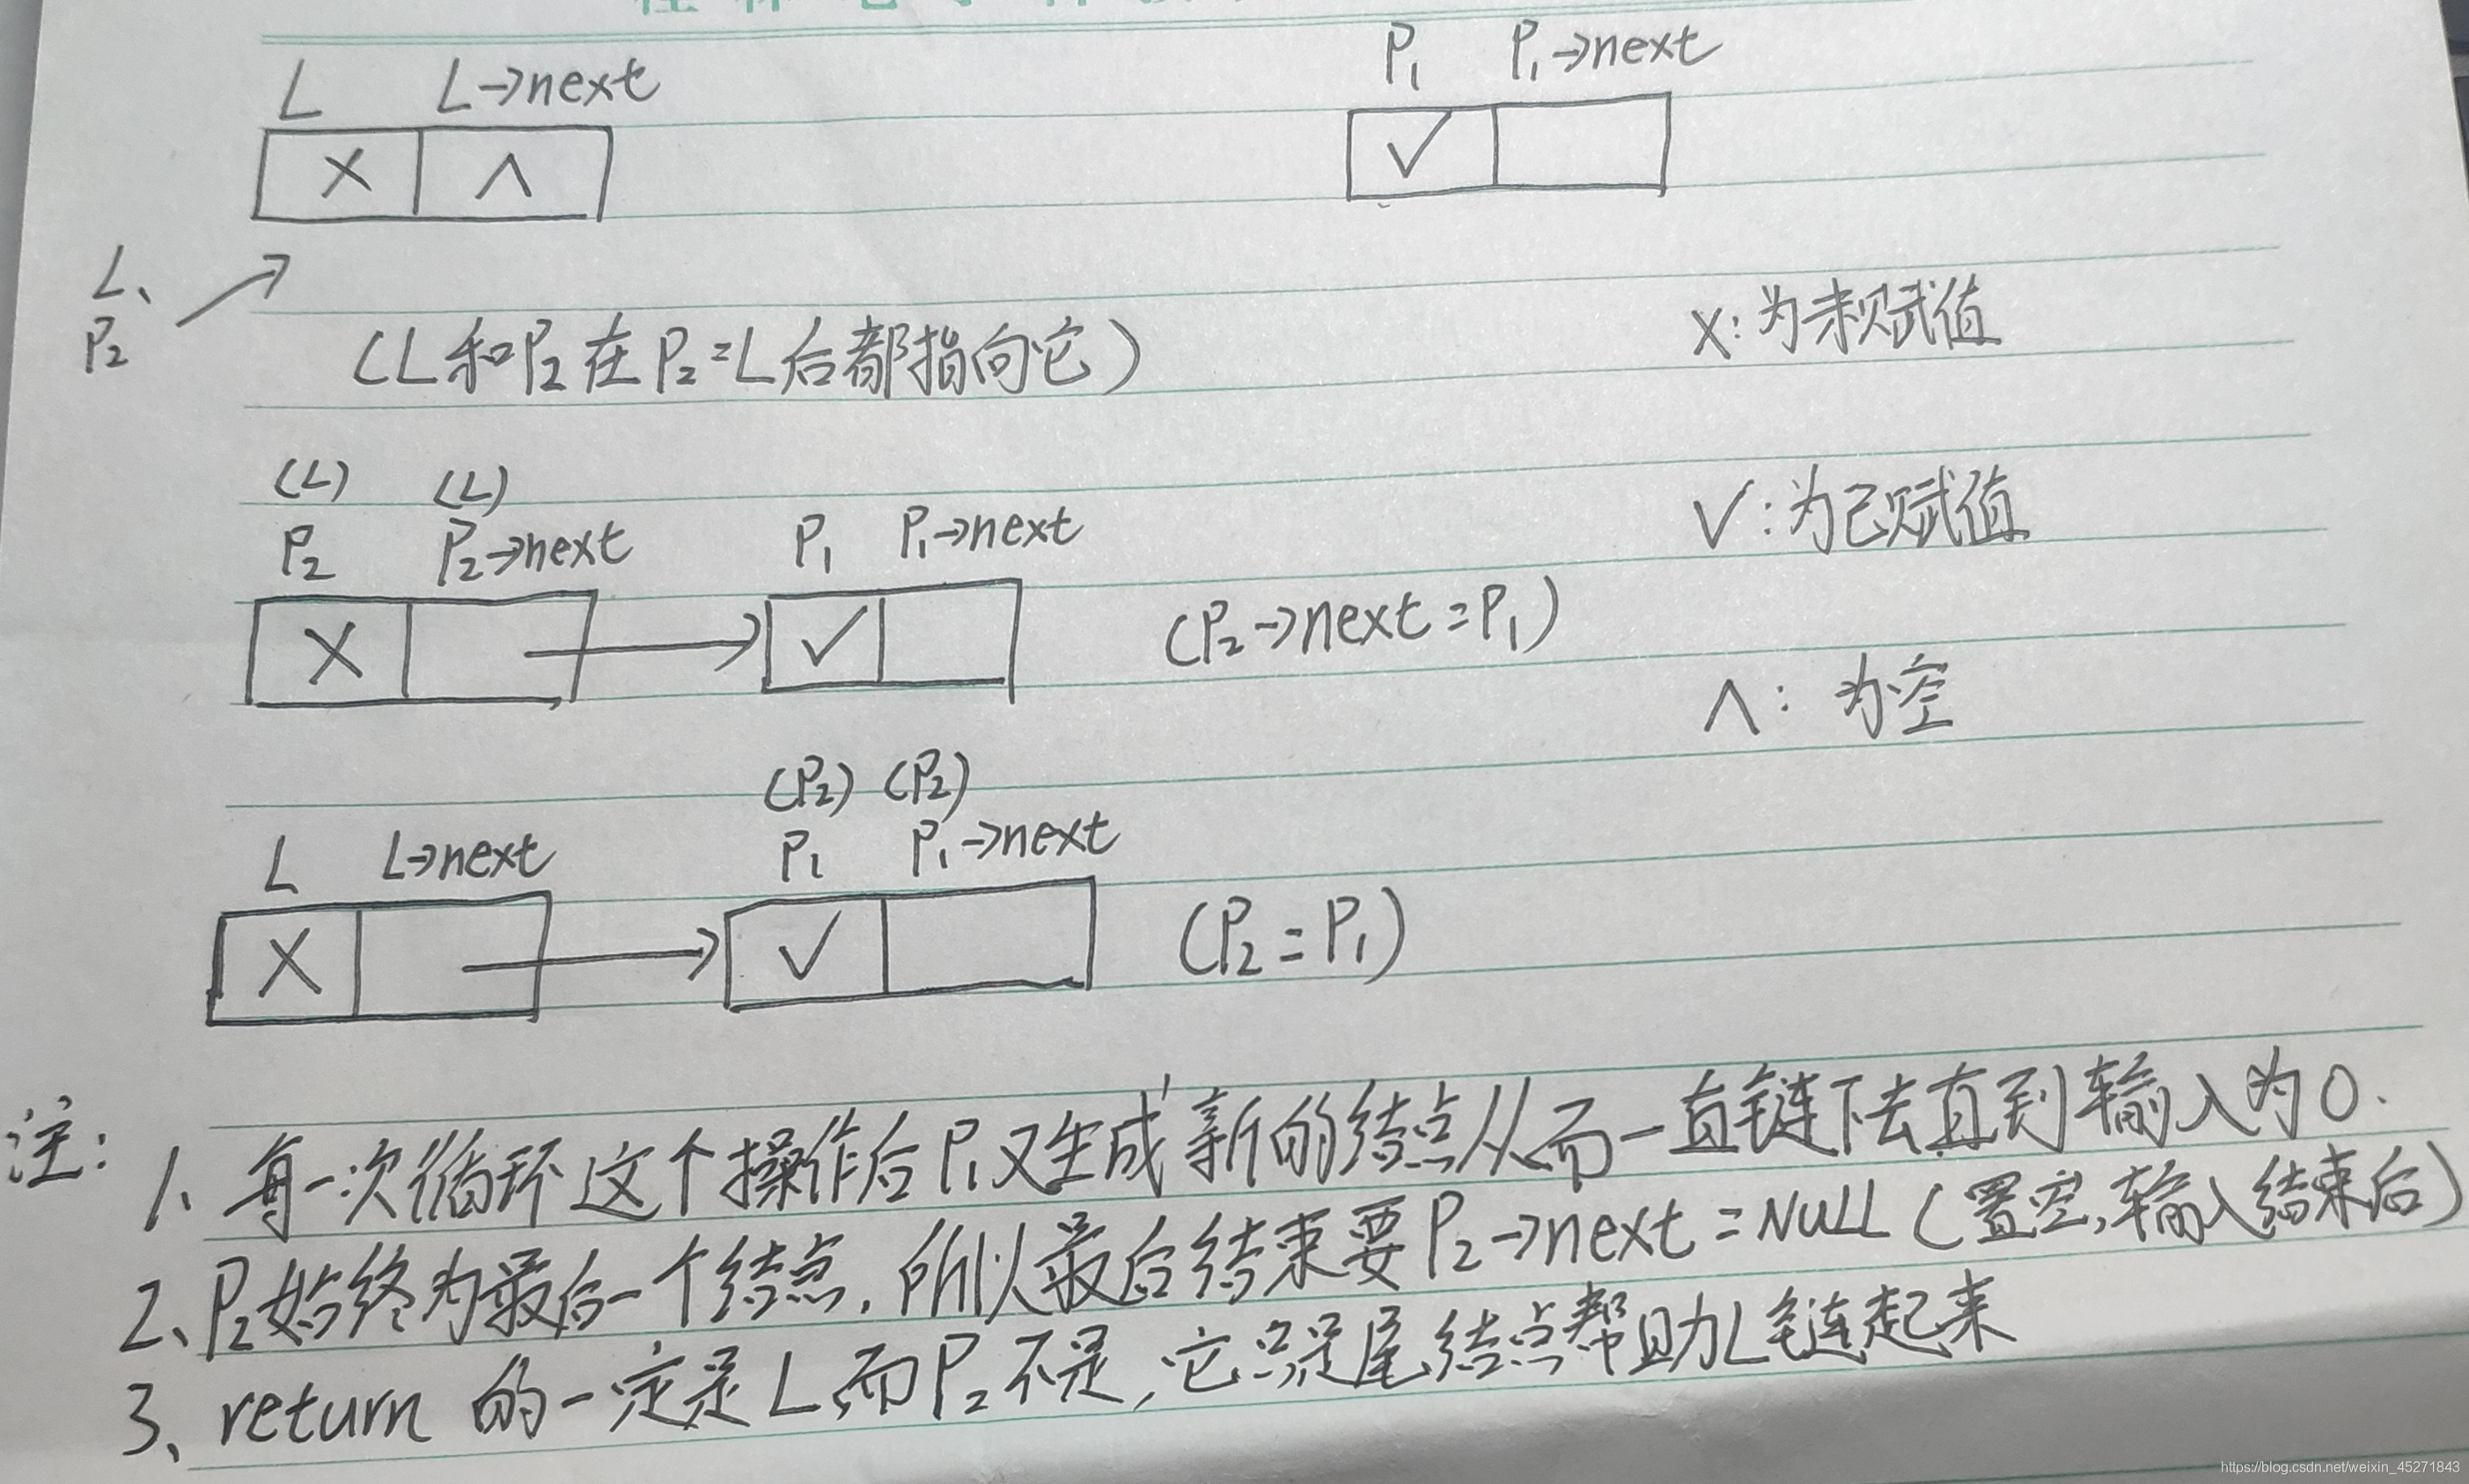 L L→next P₁ P₁→next
× ∧ √
L、
P₂
(L和P₂在P₂=L后都指向它)
×:为未赋值
(L) (L)
P₂ P₂→next P₁ P₁→next
√:为已赋值
× √ (P₂→next=P₁)
∧: 为空
(P₂) (P₂)
L L→next P₁ P₁→next
× √ (P₂=P₁)
注:
1、每一次循环这个操作后P₁又生成新的结点从而一直链下去直到输入为0.
2、P₂始终为最后一个结点,所以最后结束要P₂→next=NULL(置空,输入结束后)
3、return 的一定是L,而P₂不是,它只是尾结点帮助L链起来
https://blog.csdn.net/weixin_45271843